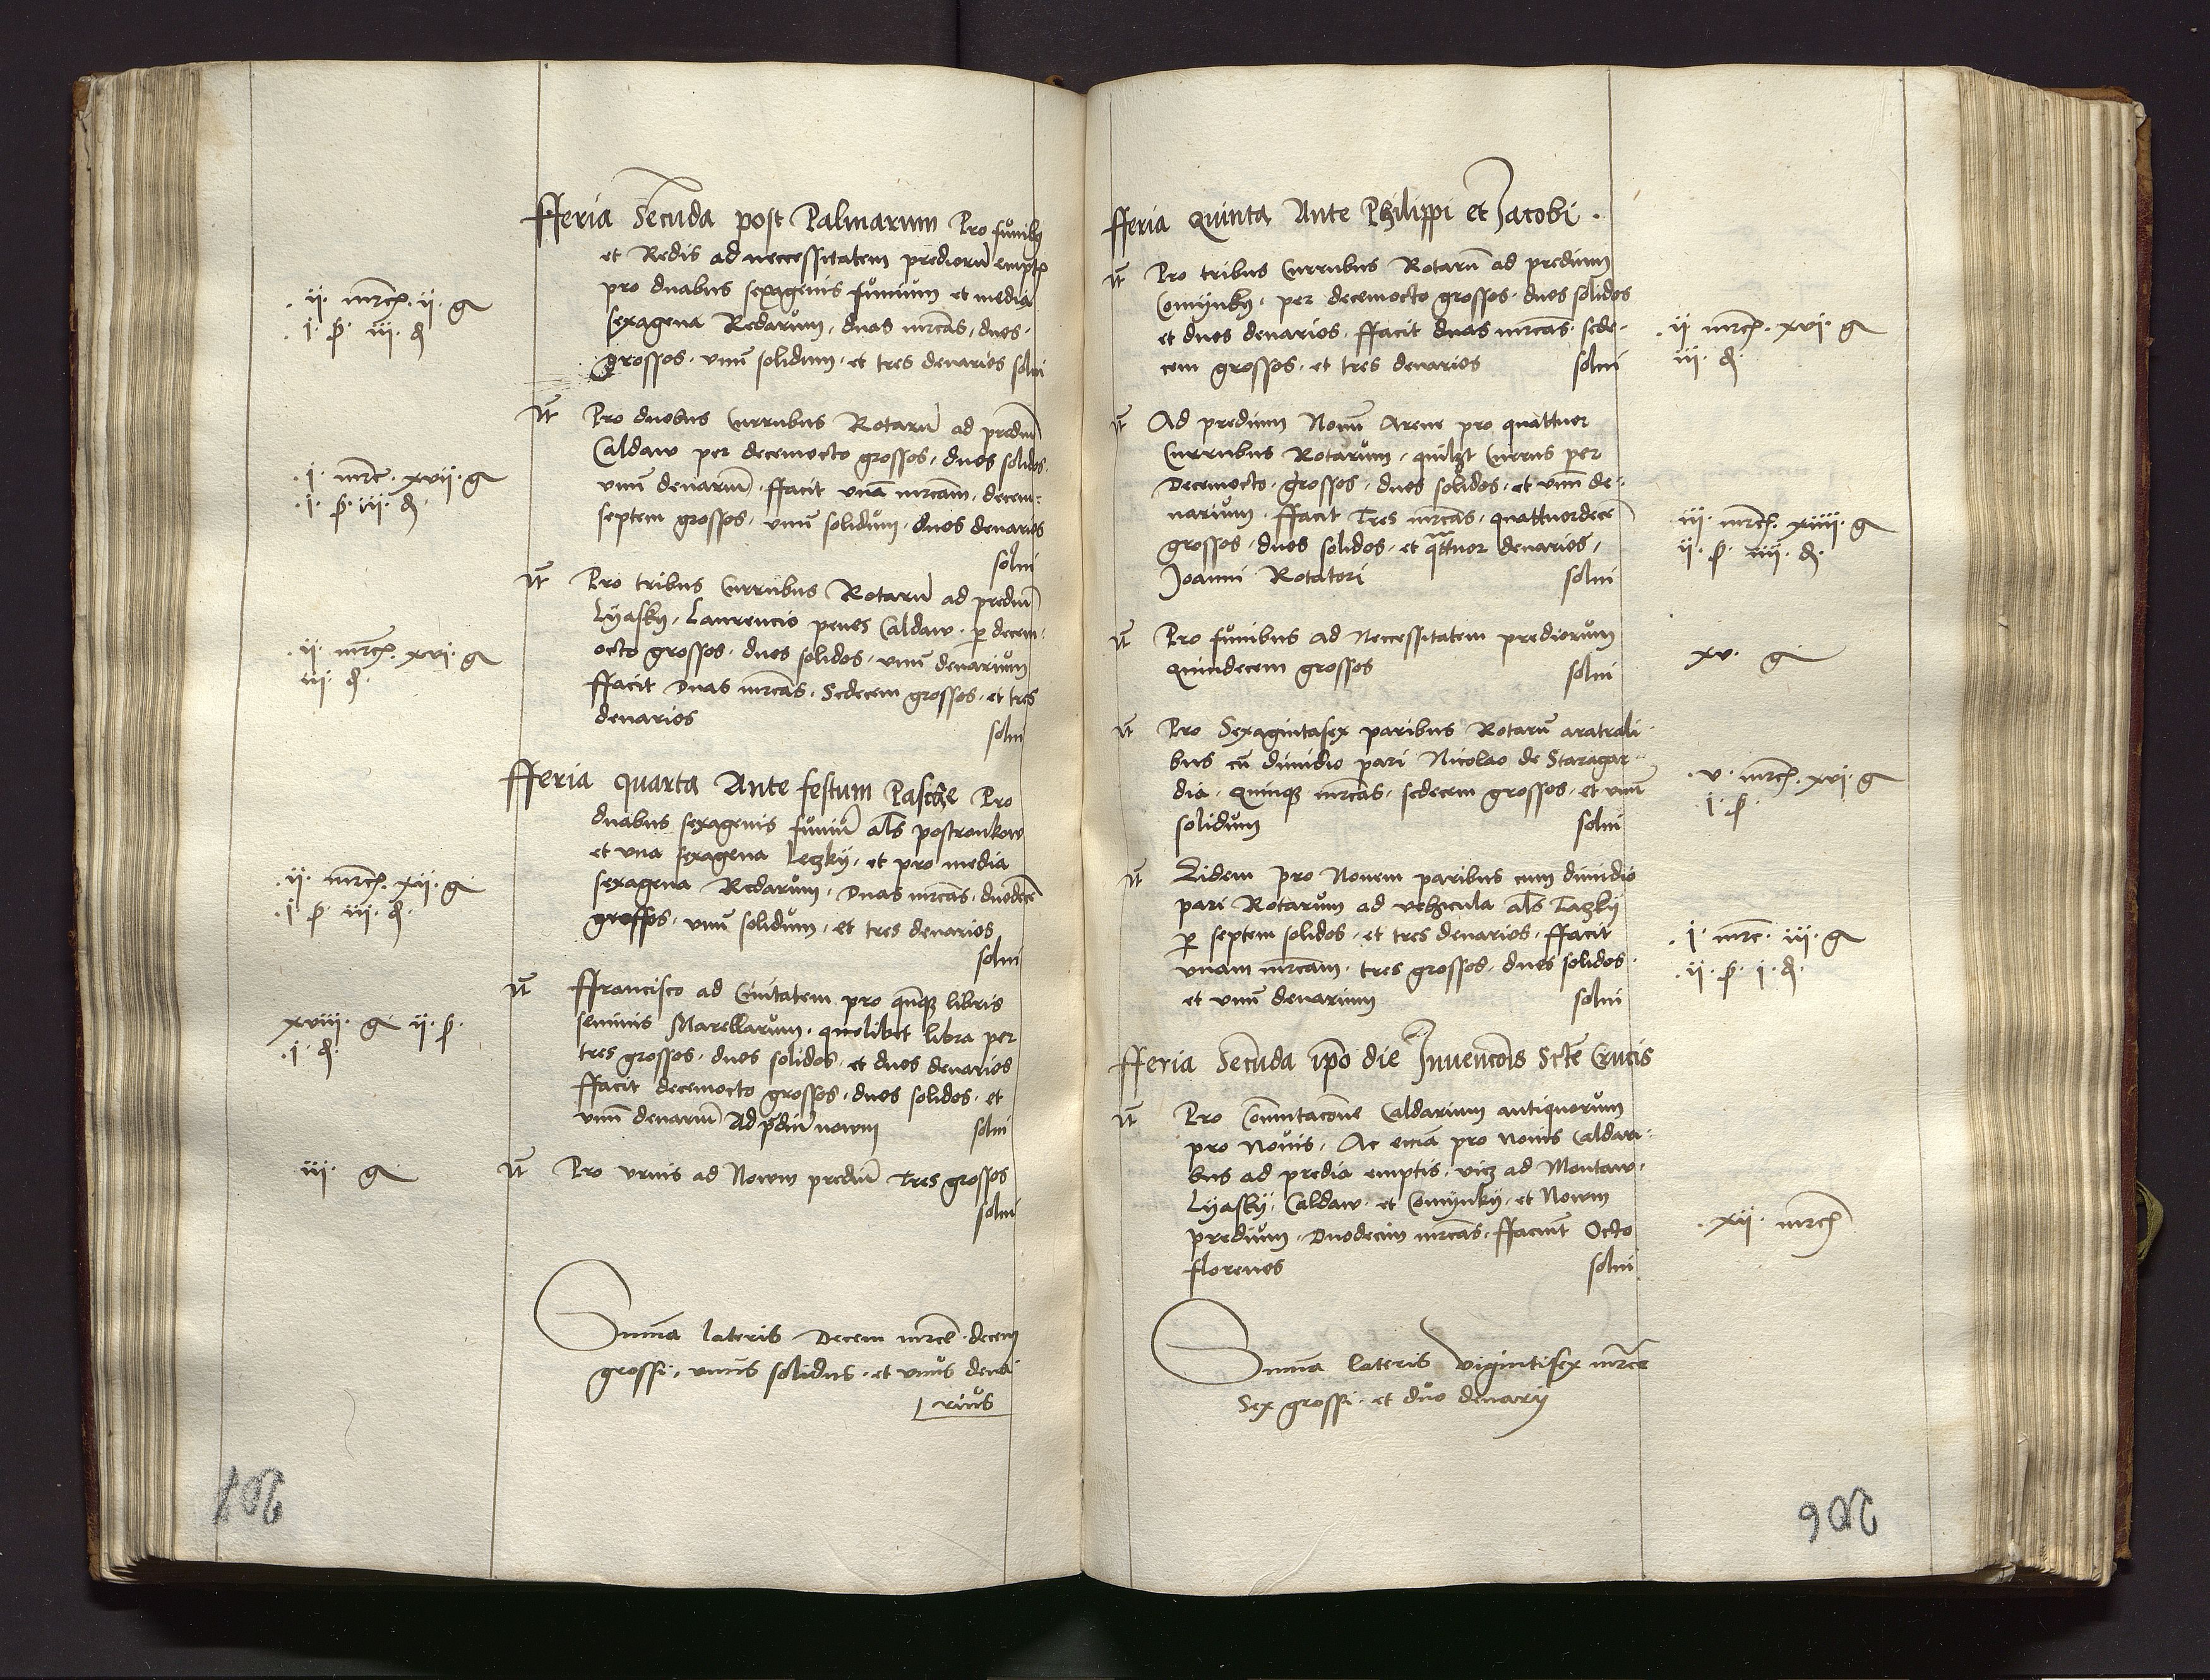 fferia Secūda post Palmarum Pro funibȝ
et Redis ad neccessitatem prediorū empt
pro duabus sexagenis funium et media
sexagena Redarum, duas mrcas, duos
grossos, vnū solidum, et tres denarios solui
.ii. mrc. ii. g
.i. ꝭ. iii. d.
Iт Pro duobus Currubus Rotarū ad prediū
Caldaw per decemocto grossos, duos solidos
vnū denariū. ffacit vnā mrcam, decem=
septem grossos, vnū solidum, duos denarios
solui
.i. mrc. xvii. g
.i. ꝭ. ii. d.
Iт Pro tribus Currubus Rotarū ad prediū
Lyasky, Laurencio penes Caldaw. ꝑ decem=
octo grossos, duos solidos, vnū denarium
ffacit Duas mrcas, Sedecem grossos, et tres
denarios
solui
.ii. mrc. xvi. g
iii. d.
fferia quarta Ante festum Pasche Pro
duabus sexagenis funiū als postronkow
et vna sexagena Leczky, et pro media
sexagena Redarum, Duas mrcas, duodecē
grossos, vnū solidum, et tres denarios
solui
.ii. mrc. xii. g
.i. ꝭ. iii. d.
Iт ffrancisco ad Ciuitatem pro quīqȝ libris
seminis Marellarum, quelibet libra per
tres grossos, duos solidos, et duos denarios
ffacit decemocto grossos, duos solidos, et
vnū denariū Ad pdiū nowm solui
xviii. g ii. ꝭ.
.i. d.
Iт Pro vrnis ad Nowm prediū Tres grossos
solui
iii. g
Summa lateris Decem mrce. decem
grossi, vnus solidus, et vnus dena
rius
fferia Quinta Ante Philippi et Jacobi.
Iт Pro tribus Currubus Rotarū ad predium
Comynky, per decemocto grossos, duos solidos
et duos denarios. ffacit duas mrcas, sede=
cem grossos, et tres denarios solui
.ii mrc. xvi. g
iii. d.
Iт Ad predium Nouū Arene pro quattuor
Currubus Rotarum, quilȝt Currus per
Decemocto grossos, duos solidos, et vnū de=
narium. ffacit Tres mrcas, quattuordecē
grossos, duos solidos, et qttuor denarios,
Joanni Rotatori solui
iii. mrc. xiiii. g
ii. ꝭ. iiii. d.
Iт Pro funibus ad Neccessitatem prediorum
Quindecem grossos solui
xv. g
Iт Pro Sexagintasex paribus Rotarū aratrali=
bus cū dimidio pari Nicolao de Staragar=
dia. Quinqȝ mrcas, sedecem grossos, et vnū
solidum solui
.v. mrc. xvi. g
i. ꝭ.
Iт Eidem pro Nouem paribus cum dimidio
pari Rotarum ad vehicula als Taczky
ꝑ septem solidos, et tres denarios, ffacit
vnam mrcam, tres grossos, duos solidos.
et vnū denarium solui
.i. mrc. iii. g
.ii. ꝭ. i. d.
fferia Secūda ipo die Inuencois Scte Crucis
Iт Pro Cōmutacone Caldarium antiquorum
pro Nouis, Ac eciā pro nouis Caldari=
bus ad predia emptis, vicȝ ad Montaw,
Lyasky, Caldaw, et Comynky, et Nowm
predium, Duodecim mrcas, ffaciūt Octo
florenos solui
.xii. mrc
Summa lateris vigintisex mrce
Sex grossi, et duo denarij
206